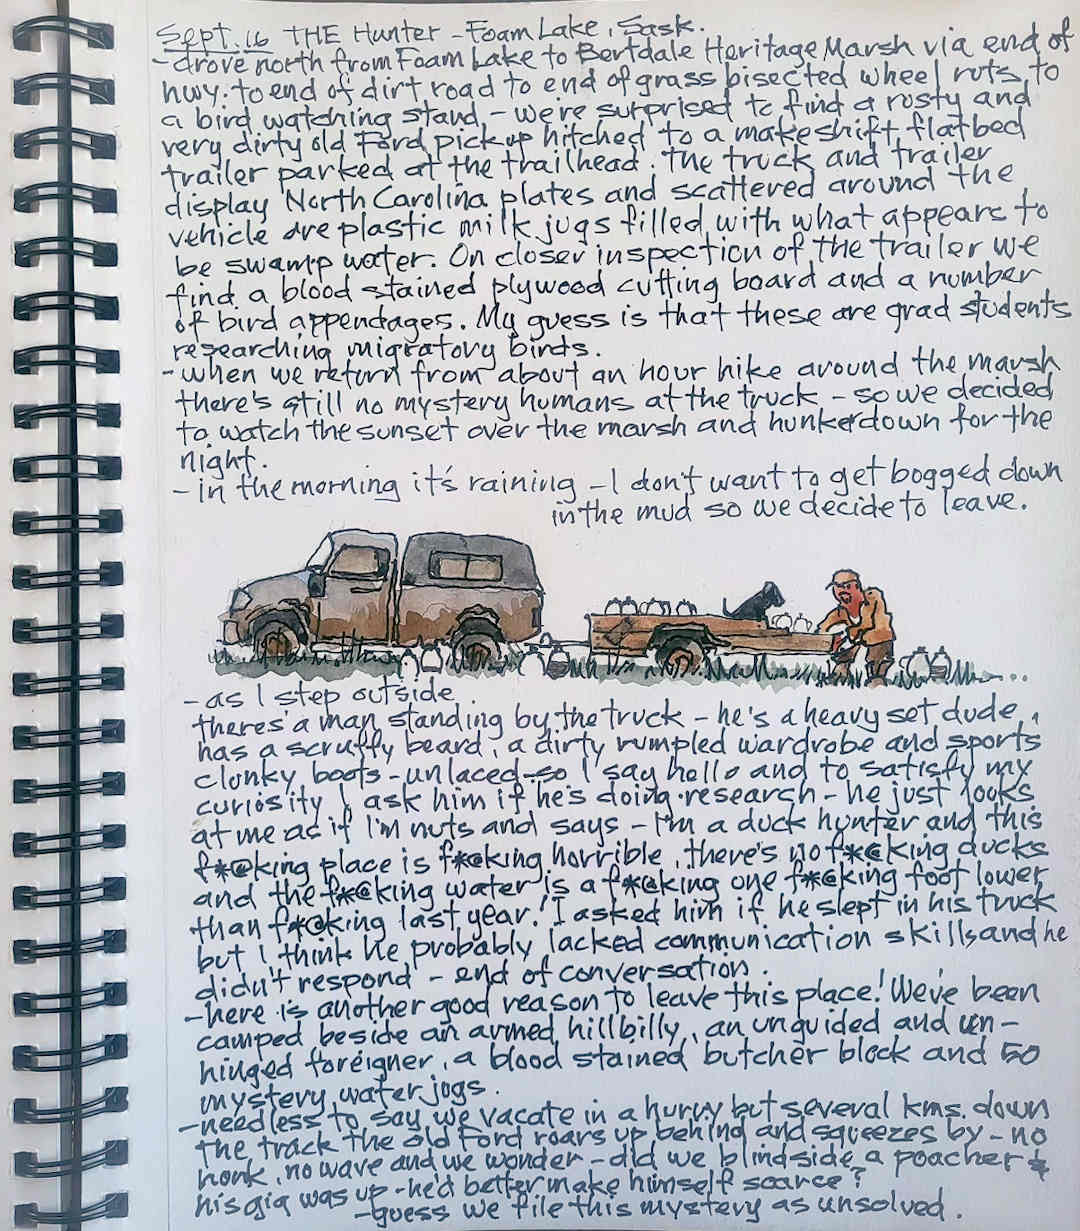 Sept. 16 THE Hunter - Foam Lake, Sask.
- drove north from Foam Lake to Bertdale Heritage Marsh via end of
hwy. to end of dirt road to end of grass bisected wheel ruts, to
a bird watching stand, - we're surprised to find a rusty and
very dirty old Ford pickup hitched to a makeshift flatbed
trailer parked at the trailhead. The truck and trailer
display North Carolina plates and scattered around the
vehicle are plastic milk jugs filled with what appears to
be swamp water. On closer inspection of the trailer we
find a blood stained plywood cutting board and a number
of bird appendages. My guess is that these are grad students
researching migratory birds.
- when we return from about an hour hike around the marsh
there's still no mystery humans at the truck - so we decided
to watch the sunset over the marsh and hunkerdown for the
night.
- in the morning it's raining - I don't want to get bogged down
in the mud so we decide to leave.
- as I step outside
there's a man standing by the truck - he's a heavy set dude,
has a scruffy beard, a dirty rumpled wardrobe and sports
clonky boots - unlaced - so I say hello and to satisfy my
curiosity I ask him if he's doing research - he just looks
at me as if I'm nuts and says - I'm a duck hunter and this
f*@king place is f*@king horrible, there's no f*@king ducks
and the f*@king water is a f*@king one f*@king foot lower
than f*@king last year! I asked him if he slept in his truck
but I think he probably lacked communication skills and he
didn't respond - end of conversation.
- here is another good reason to leave this place! We've been
camped beside an armed hillbilly, an unguided and un-
hinged foreigner, a blood stained butcher block and 50
mystery water jogs.
- needless to say we vacate in a hurry but several kms. down
the track the old Ford roars up behind and squeezes by - no
honk, no wave and we wonder - did we blindside a poacher &
his gig was up - he'd better make himself scarce?
- guess we file this mystery as unsolved.